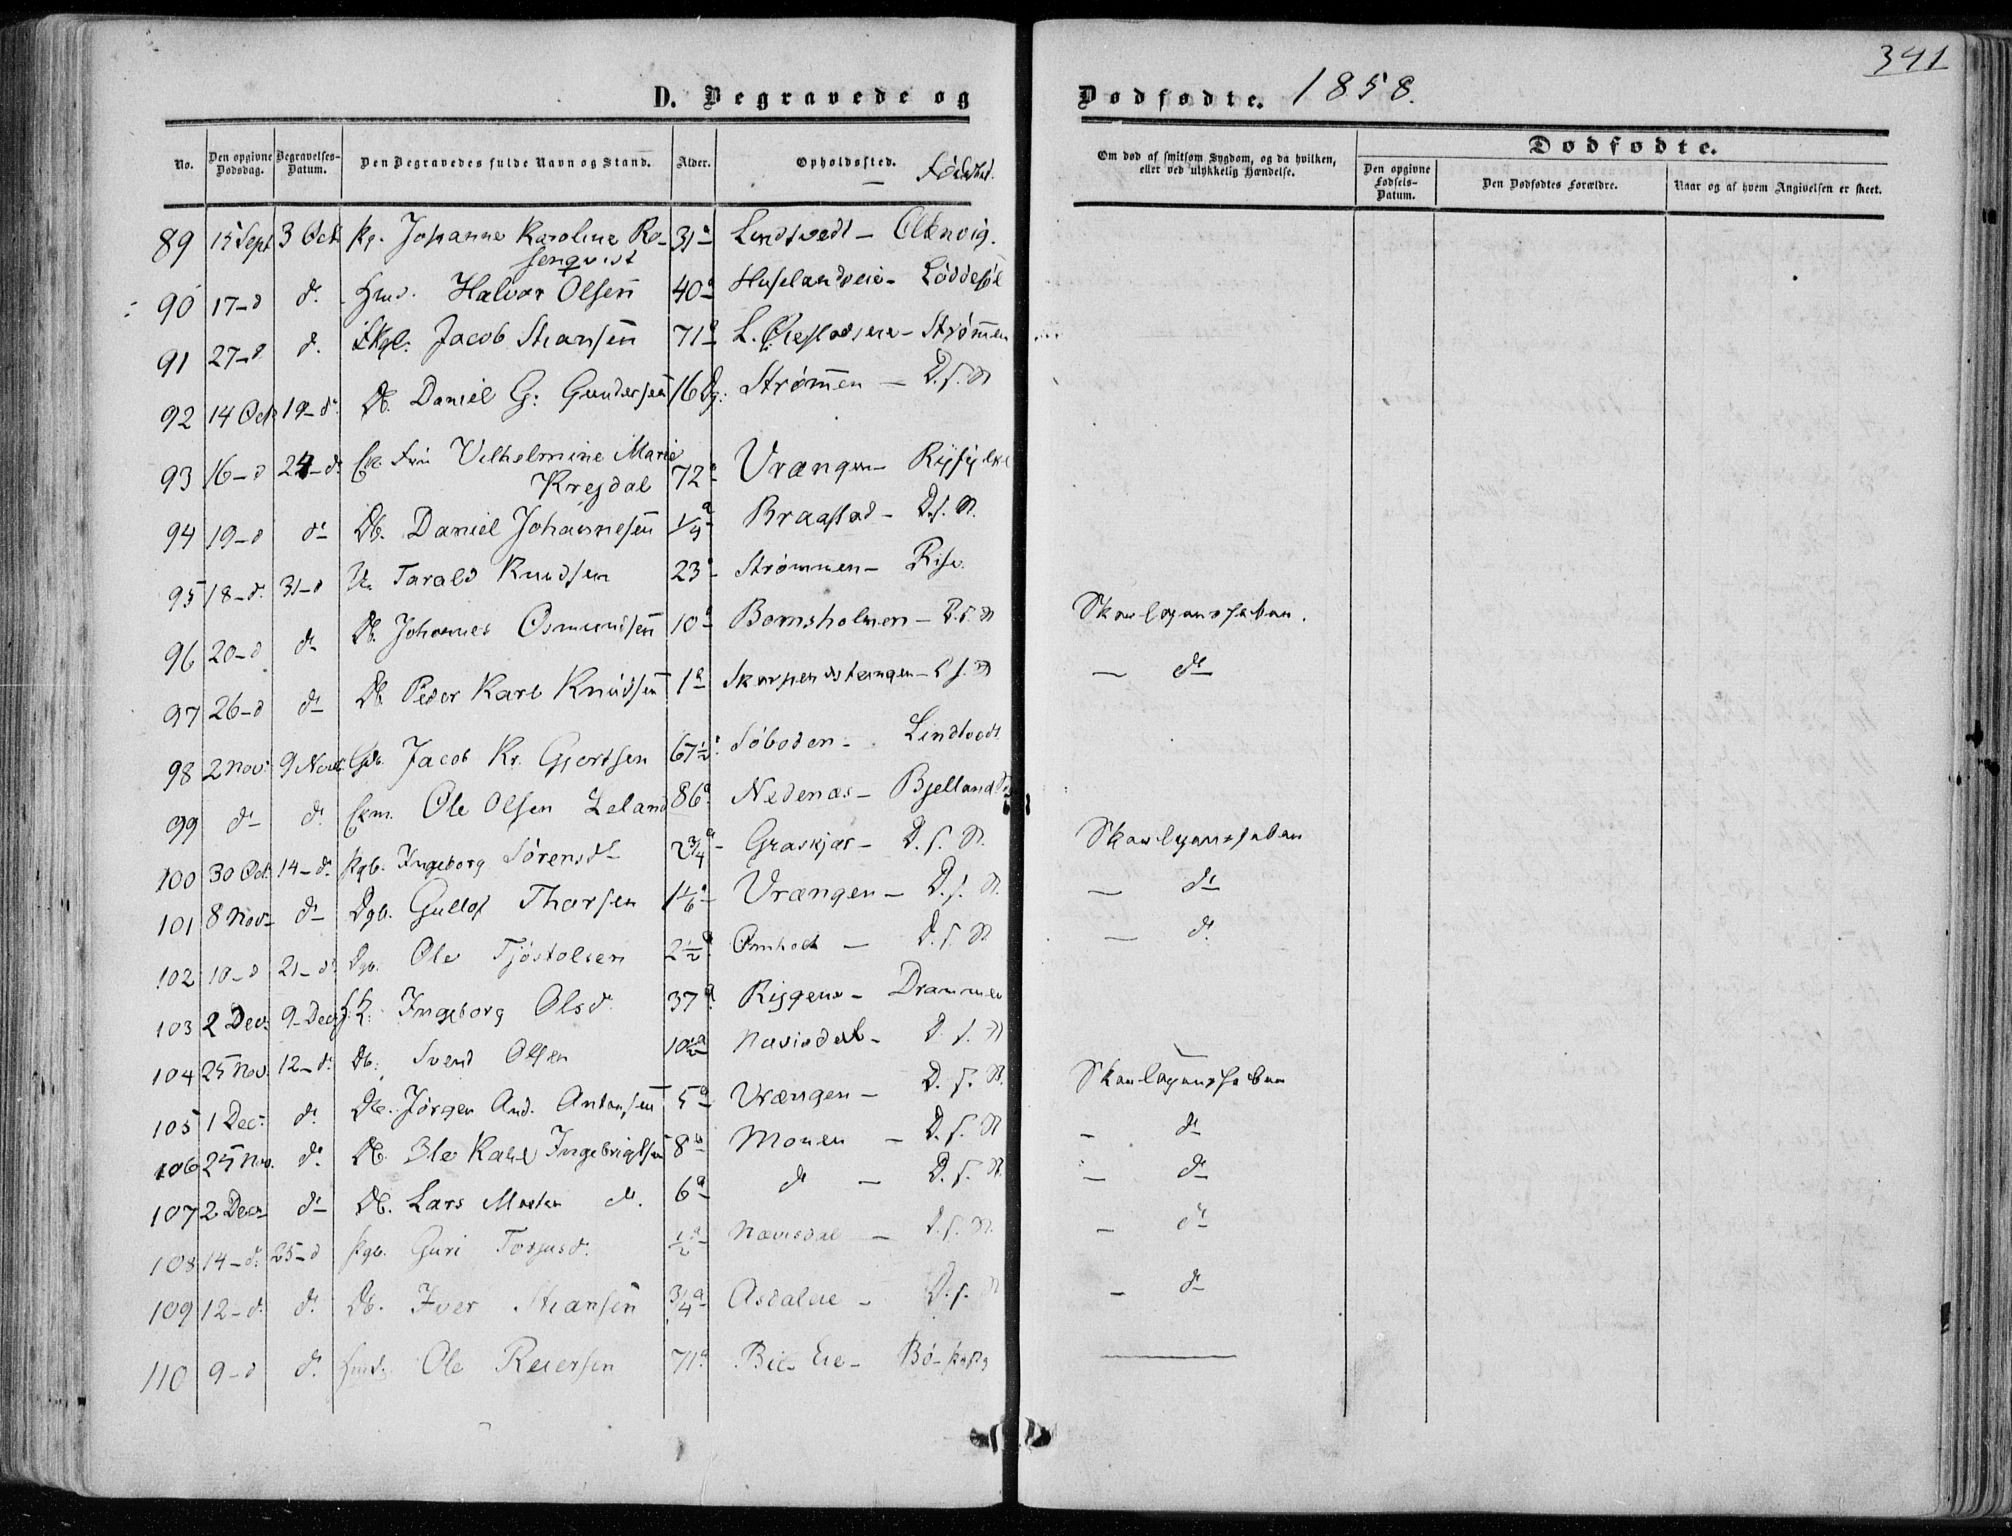 341
D. Begravede og Dødfødte. 1858.
No. Den opgivne Dødsdag. Begravelses-Datum. Den Begravedes fulde Navn og Stand. Alder. Opholdssted. Fødested.
Om død af smitsom Sygdom, og da hvilken, eller ved ulykkelig Hændelse.
Dødfødte.
Den opgivne Fødsels-Datum. Den Dødfødtes Forældre. Naar og af hvem Angivelsen er skeet.
89 15 Sept 3 Oct Pg. Johanne Karoline Ro- 31 a Lindtvedt -
senqvist
90 17 - d d. Hmd. Halvor Olsen 40 a Huselandseie - Løddesøl
91 27 - d d. Jacob Stiansen 71 a L. Øiestadseie - Strømmen
92 14 Oct 19 - d. Db. Daniel G. Gundersen 16 Dg. Strømmen - D. s. St
93 16 - d 24 - d. Vilhelmine Marie 72 a Vrængen -
Krejdal
94 19 - d d. Db. Daniel Johannesen 1/4 a Braastad - D. s. St.
95 18 - d. 31 - d U. Tarald Knudsen 23 a Strømmen - Rise.
96 20 - d d. Db. Johannes Osmundsen 10 a Bomsholmen - D. s. St Skarlagensfeber.
97 26 - d d. Db. Peder Karl Knudsen 1 a Skarpenestangen - D. s. St - d.
98 2 Nov. 9 Novb. Jacob Kr. Gjertsen 67 1/2 a Søboden - Lindtvedt
99 d. d. Ole Olsen Leland 86 a Nedenæs - Bjelland
100 30 Oct. 14 - d. Pgb. Ingeborg Sørensd. 2 3/4 a Graskjær - D. s. St. Skarlagensfeber
101 8 Nov. d. Dgb. Gullof Thorsen 1 1/6 a Vrængen - D. s. St. - d.
102 10 - d 21 - d. Dgb. Ole Tjøstolsen 2 1/2 a Omholt - D. s. St - d.
103 2 Dec. 9 Dec. Ingeborg Olsd. 37 a Riisgene - Drammen
104 25 Nov. 12 - d. Db. Svend Olsen 10 1/2 a Navisdal - D. s. St -
105 1 Dec. d. Db. Jørgen And. Antonsen 5 a Vrængen - D. s. St. Skarlagensfeber
106 25 Nov. d. Db. Ole Kahl Ingebrigtsen 8 a Monen - D. s. St - d.
107 2 Decb. d. Db. Lars Morten d. 6 a d. - D. s. St - d.
108 14 - d. 25 - d Pgb. Guri Torjusd. 1/2 a Navisdal - D. s. St. - d.
109 12 - d. d. Db. Iver Stiansen 3/4 a Asdaleie - D. s. St - d.
110 9 - d d. Hmd. Ole Reiersen 71 a Bie - Eie - Bø -